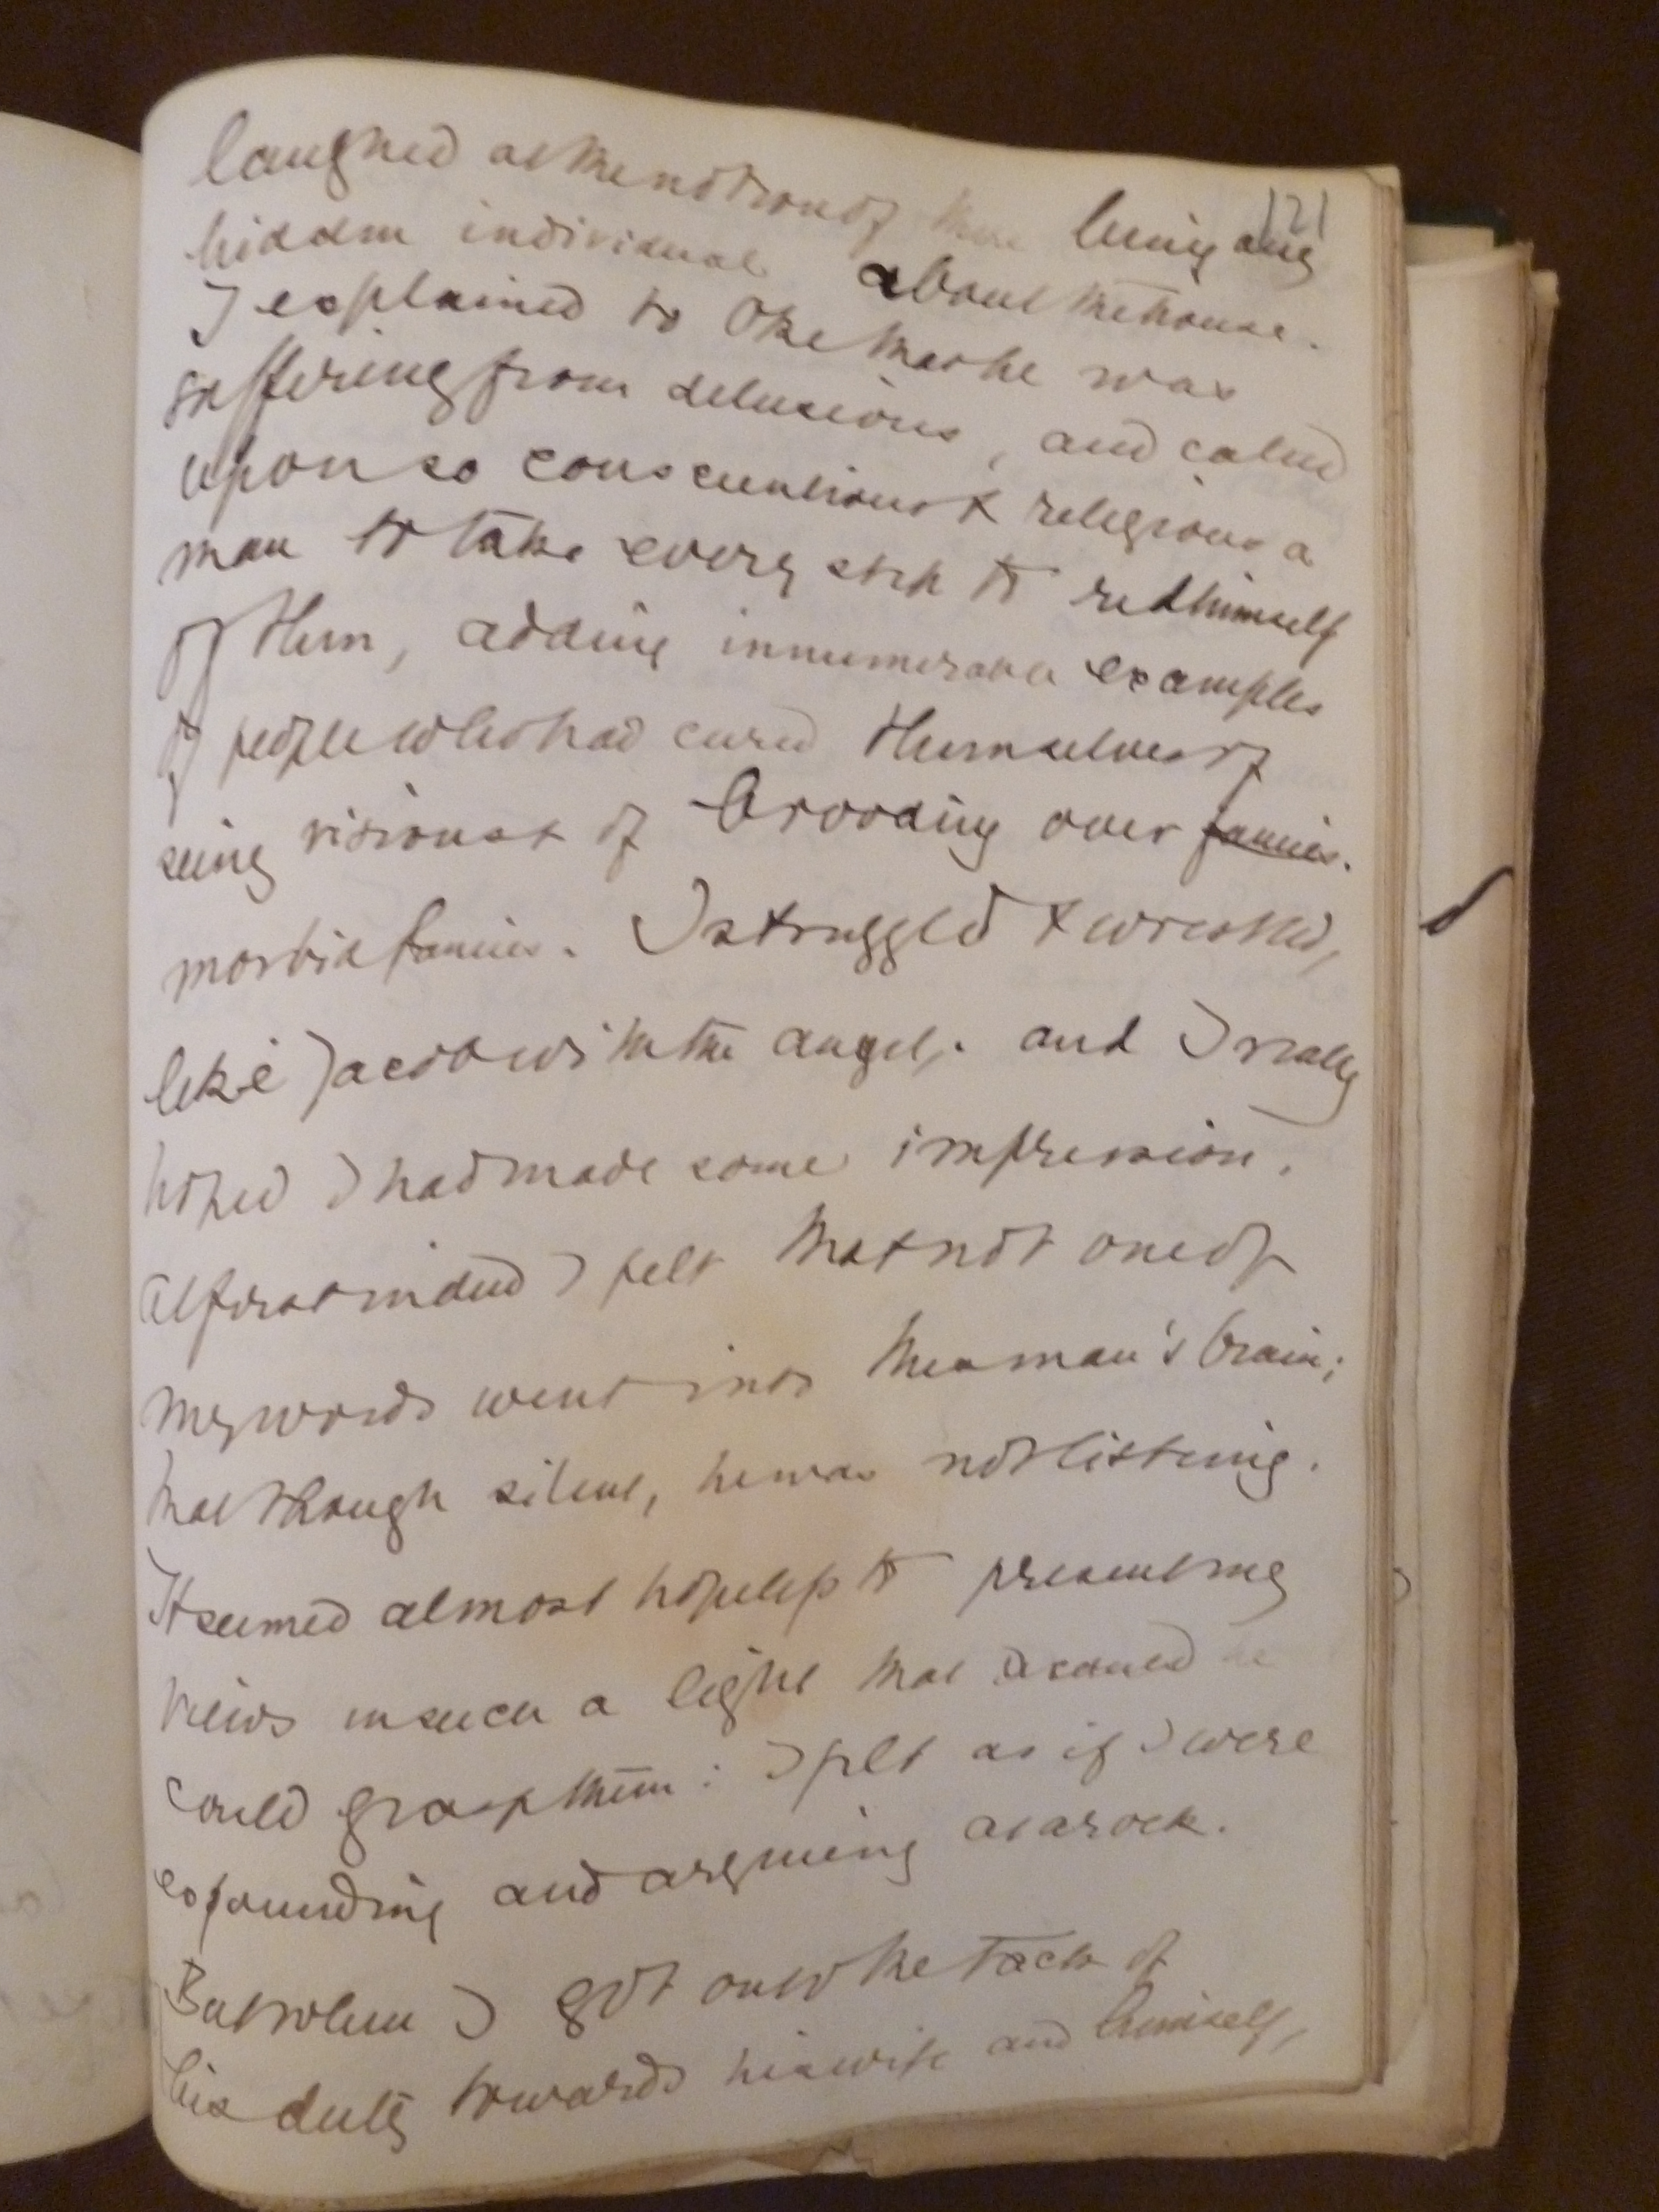 121
laughed at the notion of there being any
hidden individual about the house.
I explained to Oke that he was
suffering from delusions, and called
upon so conscientious & religious a
man to take every step to rid himself
of them, adding innumerable examples
of people who had cured themselves of
seeing visions & of brooding over fancies.
morbid fancies. I struggled & wrestled,
like Jacob with the angel, and I really
hoped I had made some impression.
At first indeed I felt that not one of
my words went into the man's brain;
that though silent, he was not listening.
It seemed almost hopeless to present my
views in such a light that he
could grasp them: I felt as if I were
expounding and arguing at a rock.
But when I got onto the tack of
his duty towards his wife and himself,